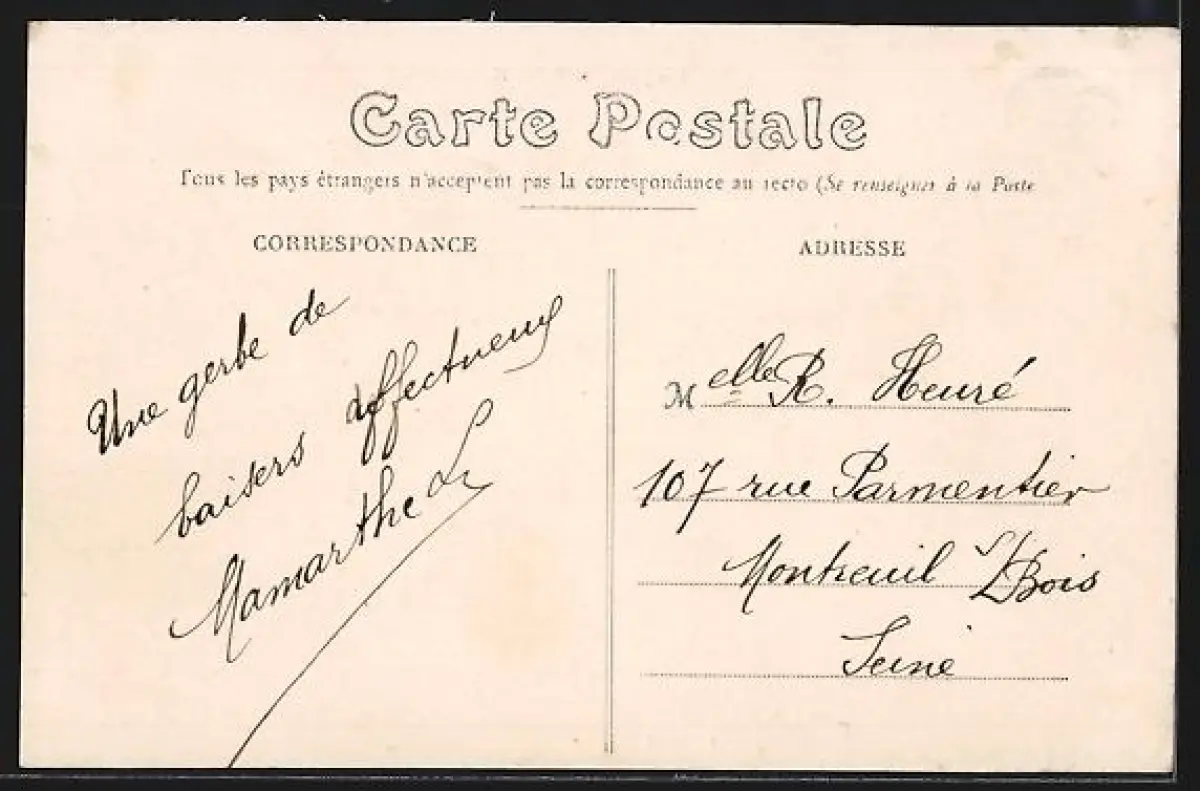 Carte Postale
Tous les pays étrangers n'acceptent pas la correspondance au recto (Se renseigner à la Poste
CORRESPONDANCE
Une gerbe de
baisers affectueux
Mamarthe L
ADRESSE
Melle R. Heuré
107 rue Parmentier
Montreuil s/ Bois
Seine